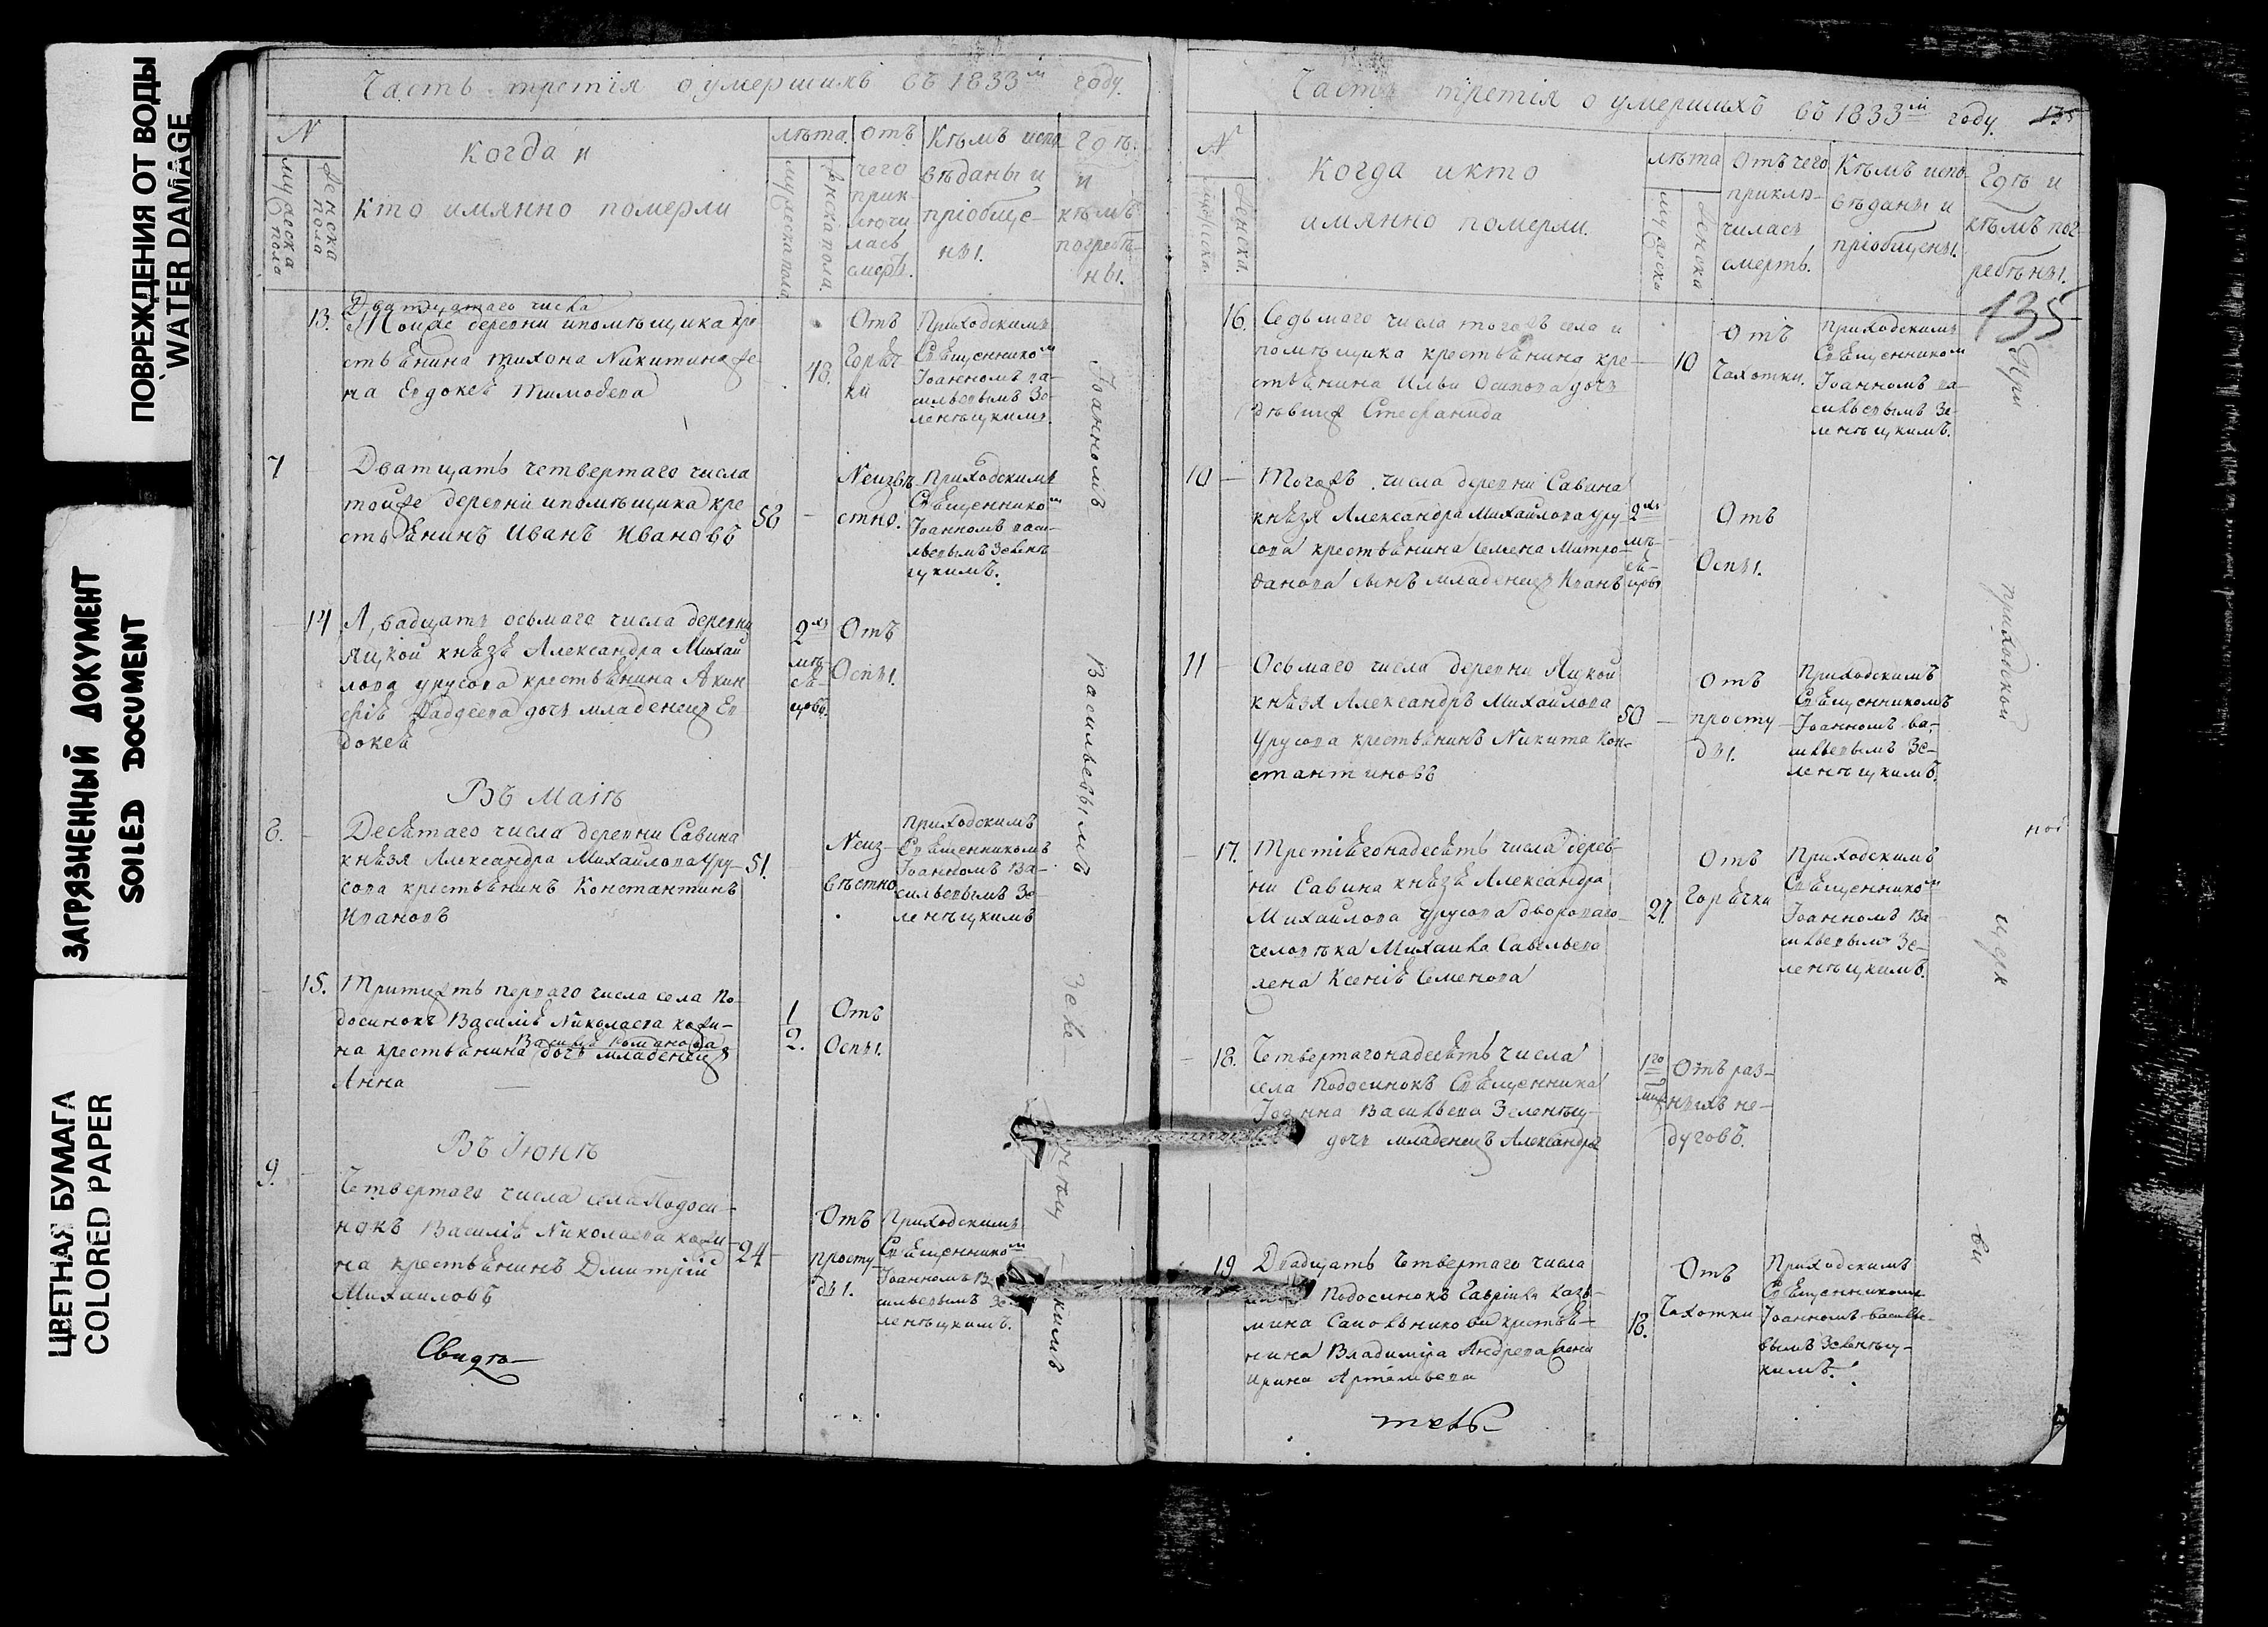 ПОВРЕЖДЕНИЯ ОТ ВОДЫ
WATER DAMAGE
ЗАГРЯЗНЕННЫЙ ДОКУМЕНТ
SOILED DOCUMENT
ЦВЕТНАЯ БУМАГА
COLORED PAPER
Часть третія о умершихъ въ 1833м году.
N
мужеска пола
женска пола
когда и
кто имянно померли
лѣта
мужеска пола
женска пола
Отъ
чего
прик-
лючи
лась
смерть.
Кѣмъ испо
вѣданы и
пріобще-
ны.
Гдѣ
и
кѣмъ
погребѣ-
ны.
13.
Дватцатаго числа
Тойже деревни ипомѣщика кре
стьянина Тихона Никитина же
на Евдокея Тимофева
43.
Отъ
Горяч
ки
Приходскимъ
Священником
Іоанномъ ва-
сильевымъ Зе-
ленѣцкимъ.
7
Дватцать четвертаго числа
тойже деревни ипомѣщика кре
стьянинъ Иванъ Ивановъ
56
Неизвѣ
стно.
Приходскимъ
Священником
Іоанномъ васи-
льевымъ Зелен
ѣцкимъ.
14
Двадцать осьмаго числа деревни
Яцкой князя Александра Михай
лова Урусова крестьянина Акин-
фія Фадѣева дочь младенецъ Ев
докея
2хъ
мѣ-
ся-
цовъ.
Отъ
Оспы.
Въ Маіѣ
8.
Десятаго числа деревни Савина
князя Александра Михайлова Уру-
сова крестьянинъ Константинъ
Ивановъ
51.
Неиз-
вѣстно
Приходскимъ
Священникомъ
Іоанномъ Ва-
сильевымъ Зе-
ленѣцкимъ
15.
Тритцать перваго числа села По-
досинокъ Василія Николаева кожи-
на крестьянина Василія Романова дочь младенецъ
Анна
1
2.
Отъ
Оспы.
Въ Іюнѣ
9.
Четвертаго числа села Подоси-
нокъ Василія Николаева кожи-
на крестьянинъ Дмитрій
Михаиловъ
24
Отъ
просту
ды.
Приходскимъ
Священником
Іоанномъ В
сильевымъ Зе
ленѣцкимъ.
Іоанномъ Васильевымъ Зеленѣцкимъ
Свидѣ-
Часть третія о умершихъ въ 1833м году.
135
N
мужеска.
женска.
Когда икто
имянно померли.
лѣта
мужеска
женска
Отъ чего
приклю-
чилась
смерть.
Кѣмъ испо-
вѣданы и
пріобщены.
Гдѣ и
кѣмъ пог-
ребѣны.
135
16.
Седьмаго числа тогожъ села и
помѣщика крестьянина кре-
стьянина Ильи Осипова дочь
дѣвица Стефанида
10
Отъ
Чахотки.
Приходскимъ
Священником
Іоанномъ ва-
сильевымъ Зе-
ленѣцкимъ.
10
Тогожъ числа деревни Савина
князя Александра Михайлова Уру-
сова крестьянина Семена Митро-
фанова сынъ младенецъ Иванъ
2хъ
мѣ-
ся-
цовъ
Отъ
Оспы.
11
Осьмаго числа деревни Яцкой
князя Александръ Михаилова
Урусова крестьянинъ Никита Кон-
стантиновъ
50
Отъ
просту
ды.
Приходскимъ
Священникомъ
Іоанномъ ва-
сильевымъ Зе-
ленѣцкимъ.
17.
Третіягонадесять числа дерев-
ни Савина князя Александра
Михайлова Урусова двороваго
человѣка Михаила Савельева
жена Ксенія Семенова
27.
Отъ
Горячки
Приходскимъ
Священником
Іоанномъ Ва
сильевымъ Зе-
ленѣцкимъ.
18.
Четвертагонадесять числа
села Подосинокъ Священника
Іоанна Васильева Зеленѣц-
дочь младенецъ Александра
Отъ раз-
ныхъ не-
дуговъ.
19
Двадцать Четвертаго числа
Подосинокъ Гавріила Казь-
мина крестья-
нина Владиміра Андрева жена
Ирина Артемьева
18.
Отъ
Чахотки
Приходскимъ
Священникомъ
Іоанномъ василье-
вымъ Зеленѣц-
кимъ.
При приходской церкви
тель